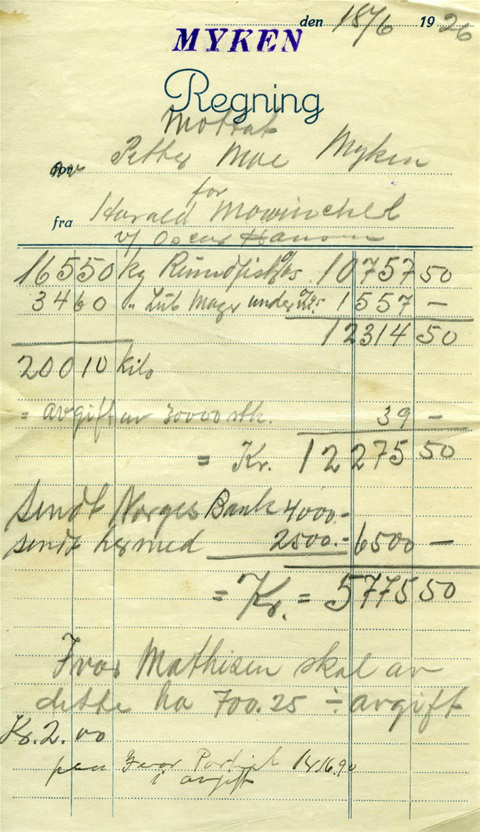 den 18/6 1926
MYKEN
Regning
Mottat
av Petter Moe Myken
for
fra Harald Mowinchel
v/ Oscar Hansen
16550 kg Rundfisk 10757 50
3460 " Lub Mager under 1557 —
12314 50
20010 kilo
= avgift av 30000 stk. 39 —
= Kr. 12275 50
sendt Norges Bank 4000.-
sendt hermed 2500.- 6500 —
= Kr. = 5775 50
Ivar Mathisen skal av
dette ha 700.25 ÷ avgift
Kr. 2.00
avgift 1416.90